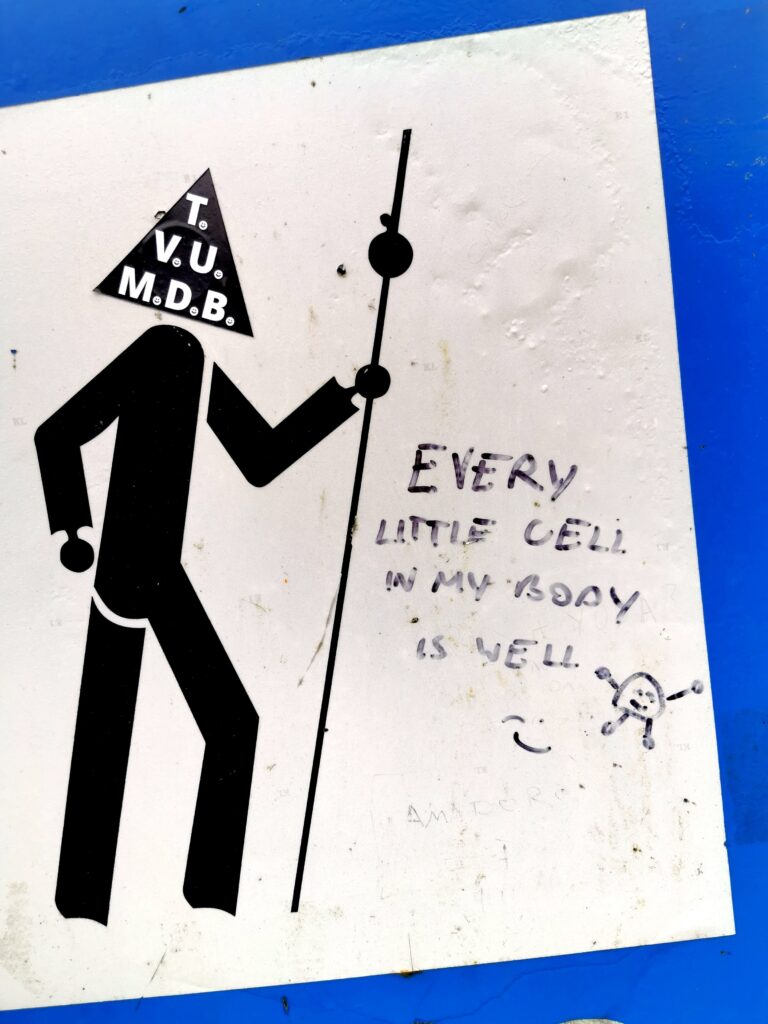 T.
V.U.
M.D.B.
EVERY
LITTLE CELL
IN MY BODY
IS WELL